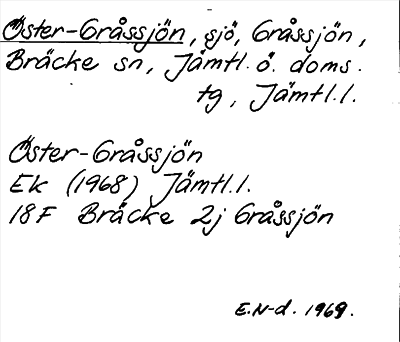 Öster-Gråssjön, sjö, Gråssjön,
Bräcke sn, Jämtl. ö. doms.
tg, Jämtl.l.
Öster-Gråssjön
Ek (1968) Jämtl.l.
18F Bräcke 2j Gråssjön
E.N-d. 1969.